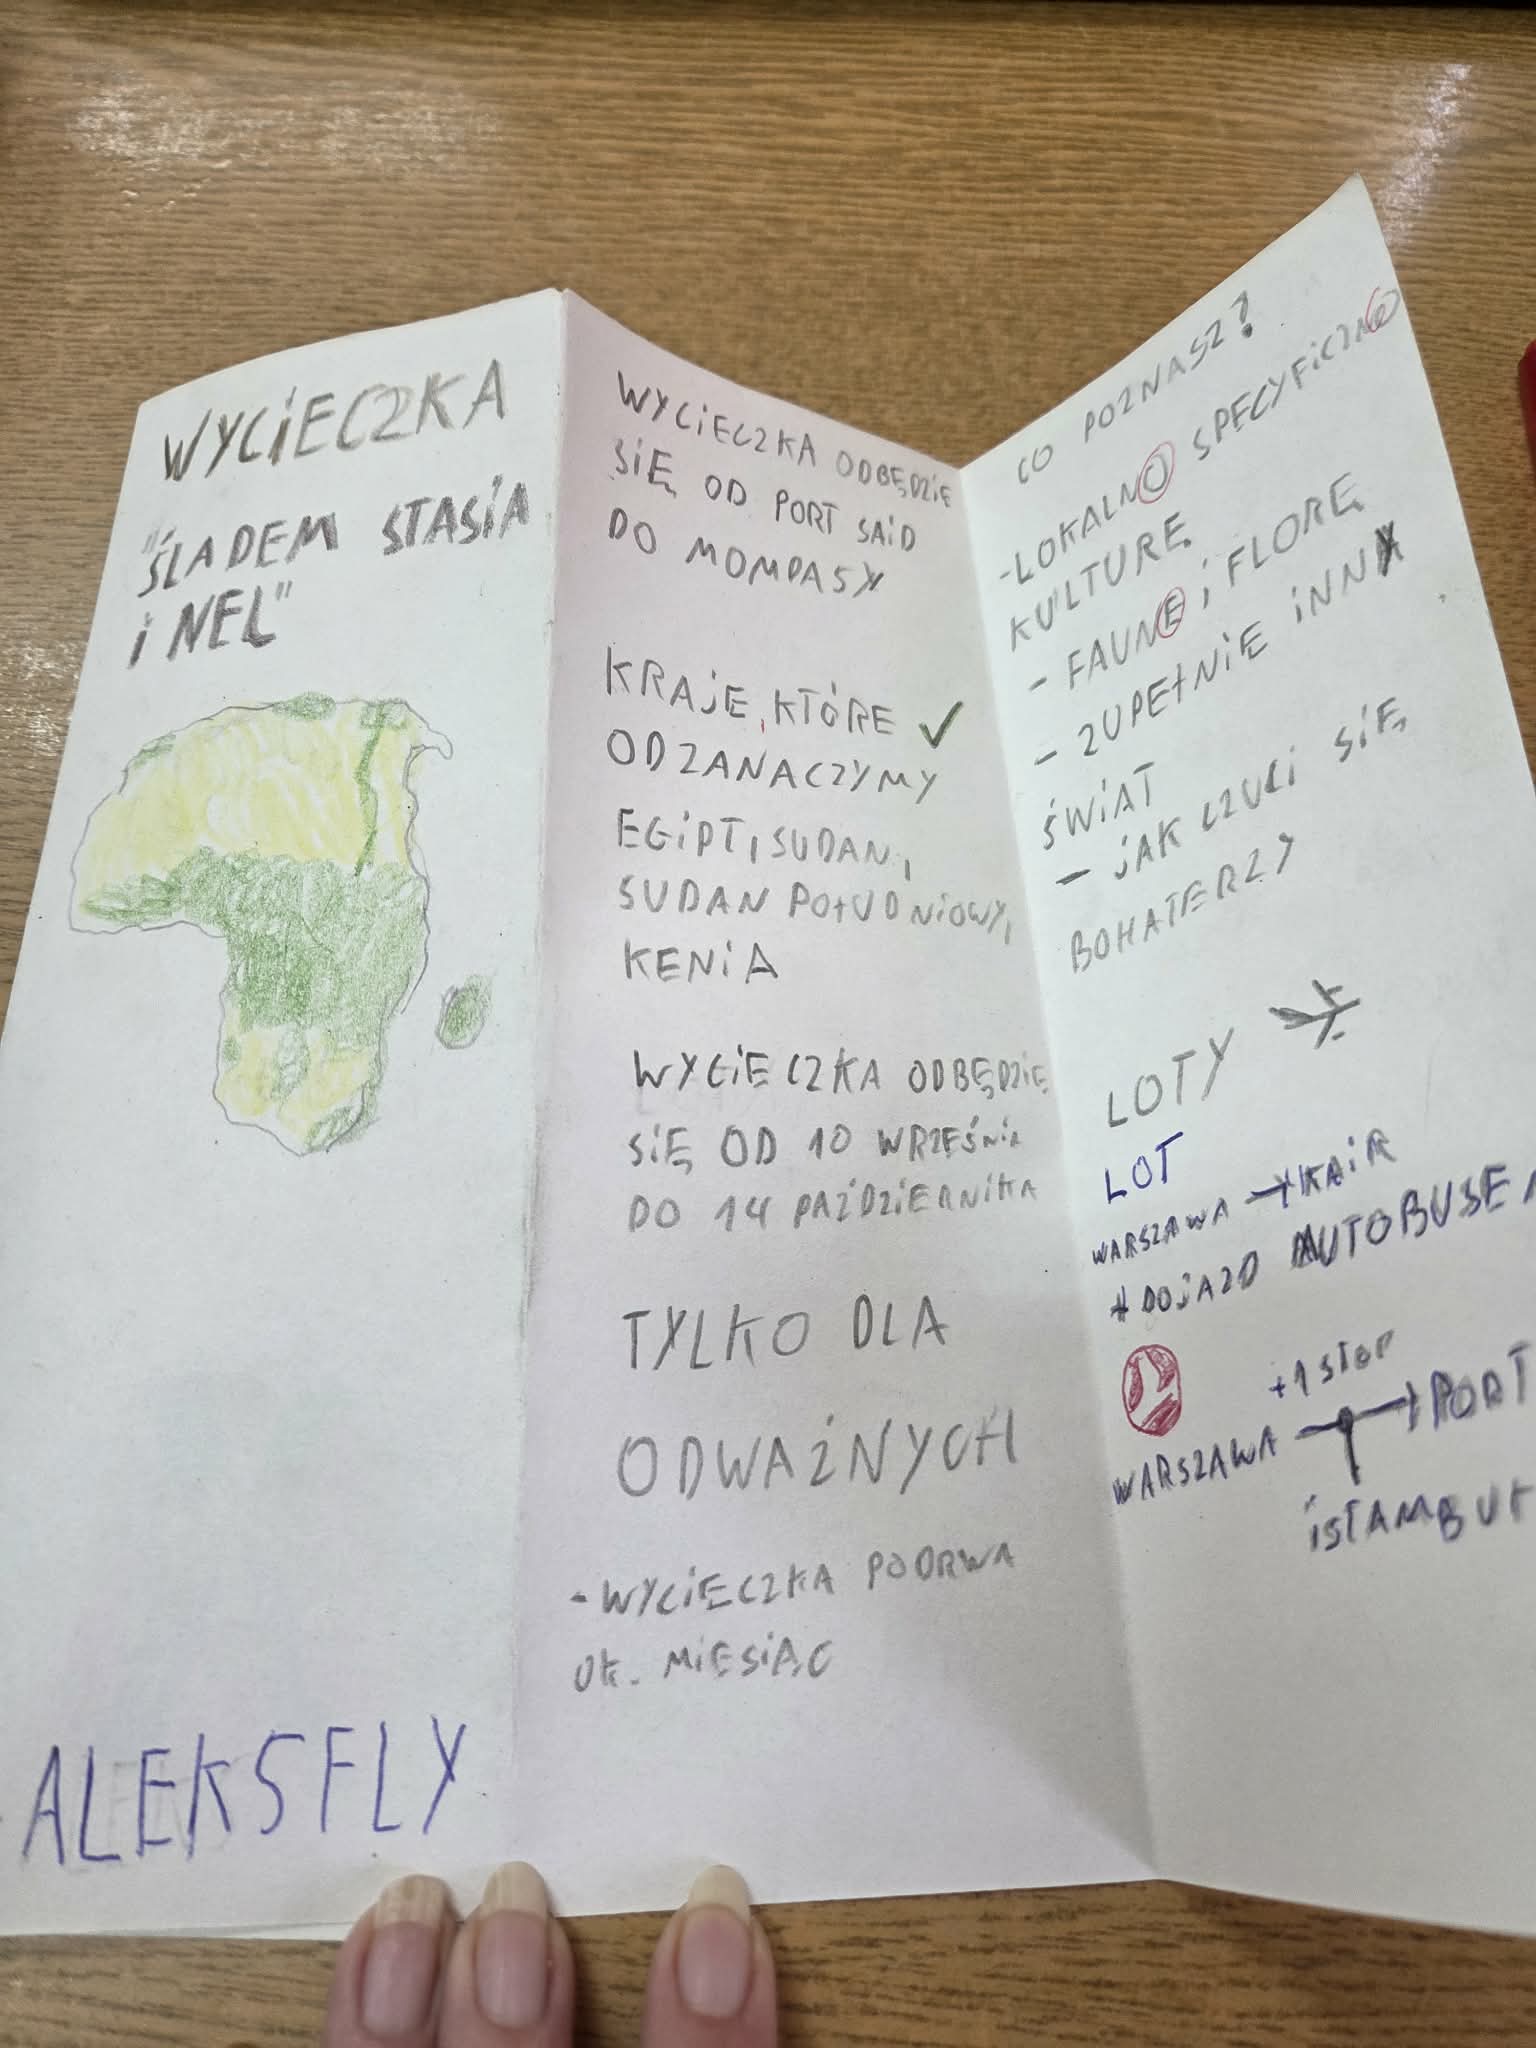 WYCIECZKA
"ŚLADEM STASIA
i NEL"
ALEKSFLY
WYCIECZKA ODBĘDZIE
SIĘ OD PORT SAID
DO MOMPASY
KRAJE, KTÓRE ✓
ODZANACZYMY
EGIPT, SUDAN,
SUDAN POŁUDNIOWY,
KENIA
WYCIECZKA ODBĘDZIE
SIĘ OD 10 WRZEŚNIA
DO 14 PAŹDZIERNIKA
TYLKO DLA
ODWAŻNYCH
- WYCIECZKA PODRWA
OK. MIESIĄC
CO POZNASZ?
-LOKALNO SPECYFICZNO
KULTURE
- FAUNE i FLORĘ
- ZUPEŁNIE INNY
ŚWIAT
- JAK CZULI SIĘ
BOHATERZY
LOTY
LOT
WARSZAWA → KAIR
+ DOJAZD AUTOBUSEM
+1 STOP
WARSZAWA → PORT
ISTAMBUŁ